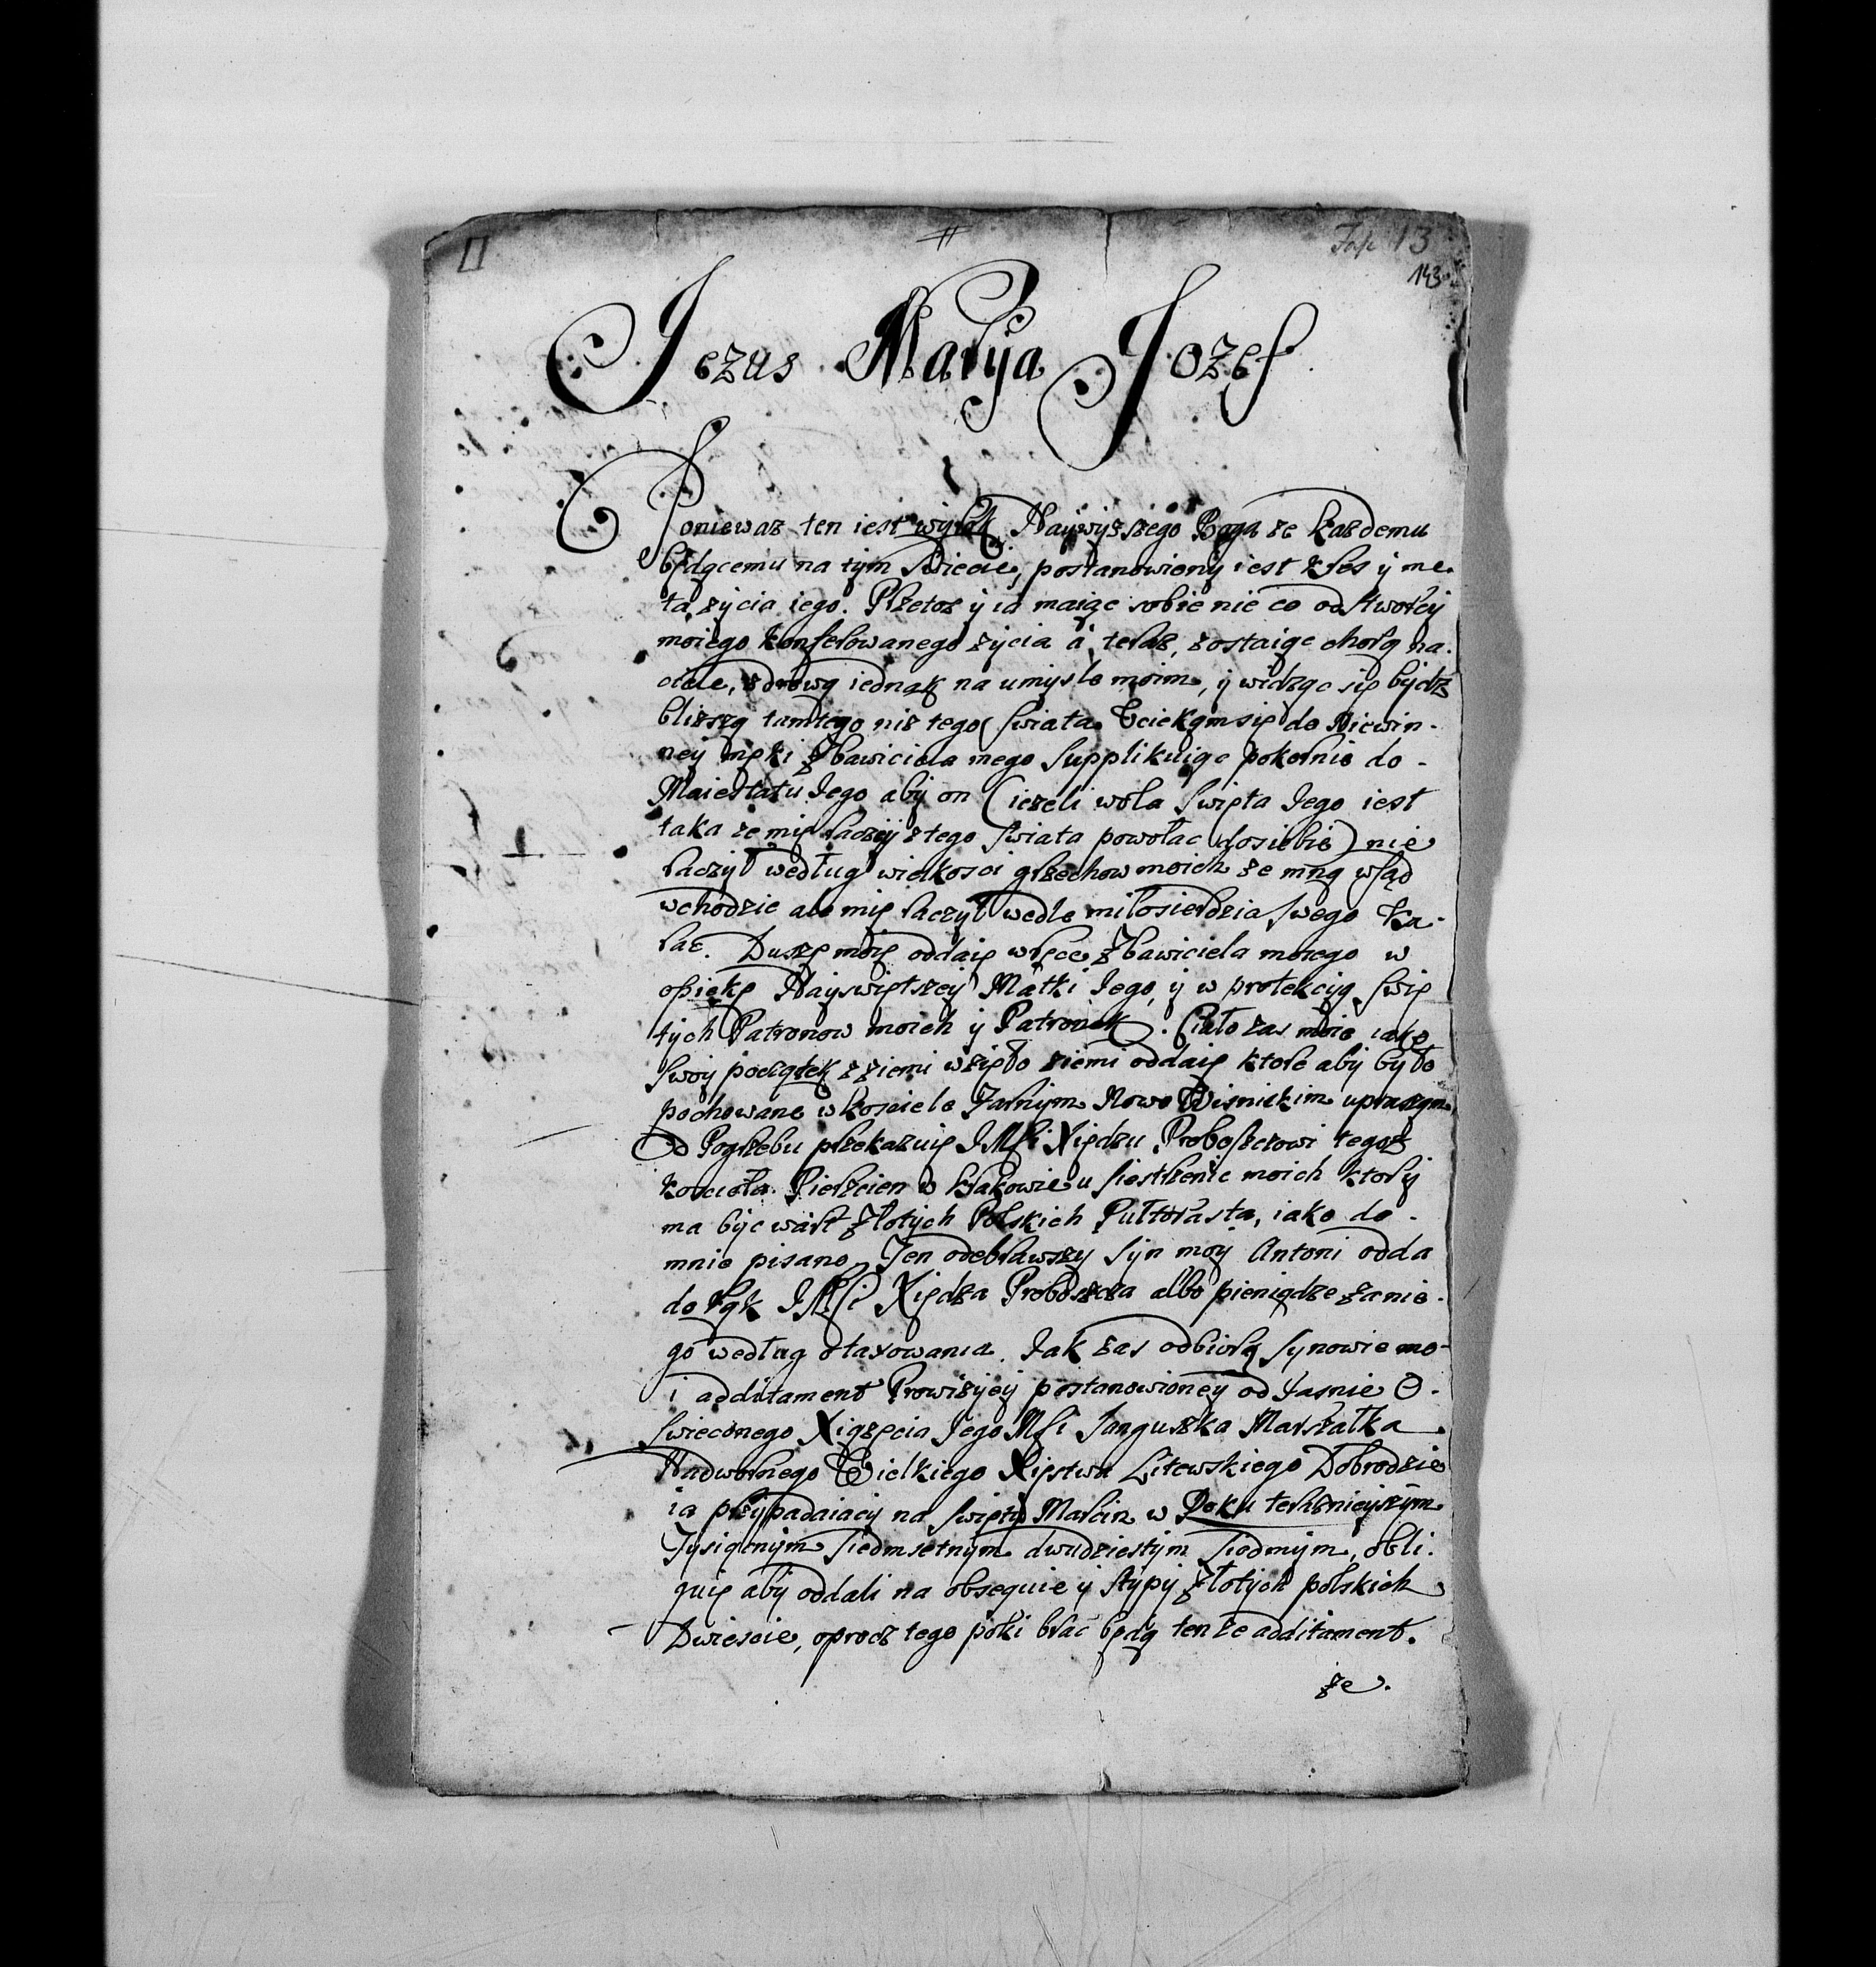 Fasc 13
143
Jezus Maryja Jozef
Poniewaz ten iest wyrok Naywyzszego Boga ze kazdemu
będącemu na tym swiecie, postanowiony iest kres y me-
ta zycia iego. Przetoz y ia maiąc sobie nie co od stworcy
moiego konferowanego zycia á teraz, zostaiąc chorą na
ciele, zdrową iednak na umysle moim, y widząc się bydz
blizszą tamtego niz tego swiata Uciekam się do Niewin-
ney męki Zbawiciela mego Supplikuiąc pokornie do
Maiestatu Jego aby on (iezeli wola swięta Jego iest
taka ze mię raczey z tego swiata powołac do siebie) nie
raczył według wielkosci grzechow moich ze mną w sąd
wchodzic ale mię raczył wedle miłosierdzia swego ka-
rac. Duszę moię oddaię w ręce Zbawiciela moiego w
opiekę Nayswiętszey Matki Jego, y w protekcyą swię
tych Patronow moich y Patronek. Ciało zas moie iako
swoy początek z ziemi wzięło ziemi oddaię ktore aby było
pochowane w kosciele Farnym Nowo Wisnickim upraszam,
Od Pogrzebu przekazuię JMsci Xiędzu Proboszczowi tegoz
koscioła Pierscien w Krakowie u siestrzenic moich ktory
ma byc wart Złotych Polskich Pułtorasta, iako do
mnie pisano, Ten odebrawszy Syn moy Antoni odda
do rąk JMsci Xiędza Proboszcza albo pieniądze za nie-
go według otaxowania. Jak zas odbiorą Synowie mo-
i additament Prowizyey postanowioney od Jasnie O-
swieconego Xiązęcia Jego Msci Sanguszka Marszałka
Nadwornego Wielkiego Xięstwa Litewskiego Dobrodzie
ia przypadaiący na swięty Marcin w Roku teraznieyszym
Tysiącnym Siedmsetnym dwudziestym Siodmym, obli-
guię aby oddali na obsequie y stypy Złotych polskich
Dwiescie, oprocz tego poki brac będą ten ze additament
ze.